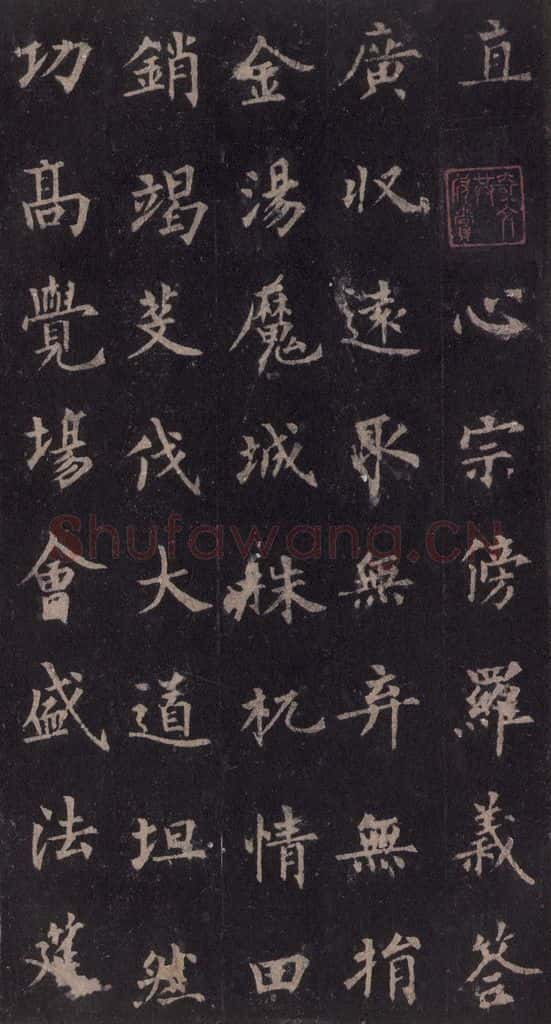 直心宗傍羅義筌
廣収遠取無弃無捐
金湯魔城株杌情田
銷竭芟伐大道坦然
功高覺場會盛法筵
Shufawang.CN